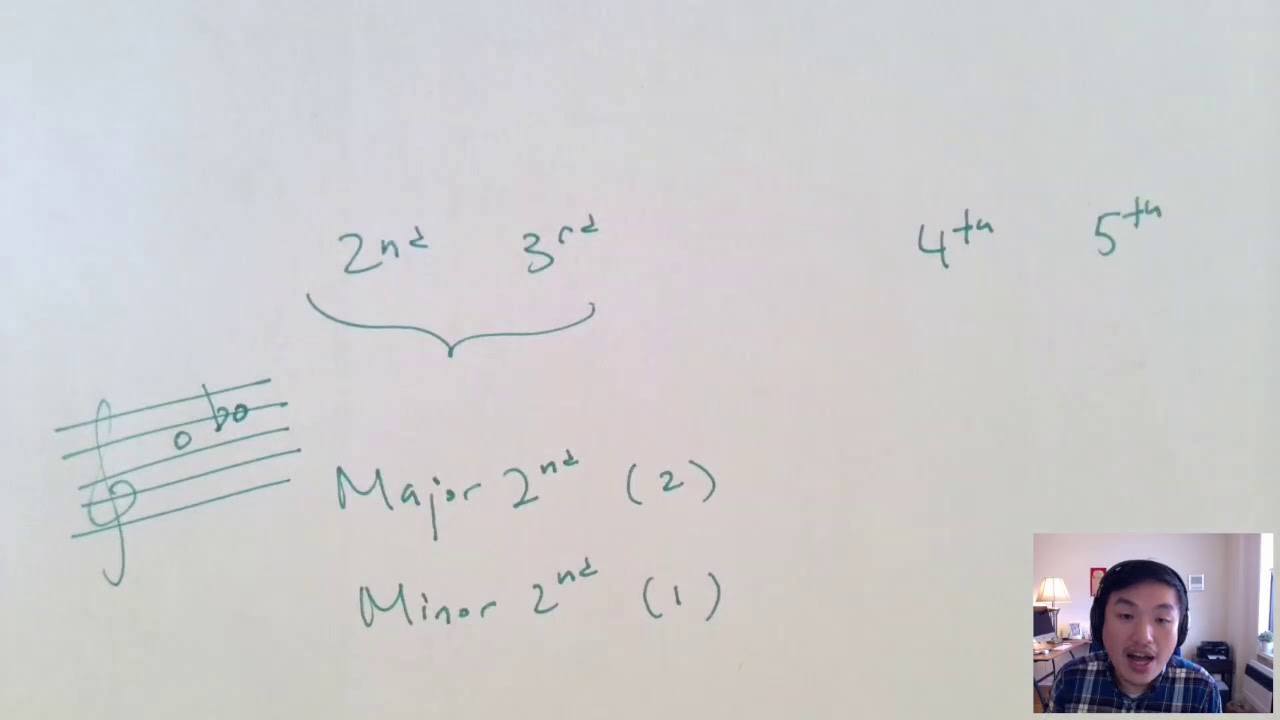 2nd 3rd 4th 5th
Major 2nd (2)
Minor 2nd (1)